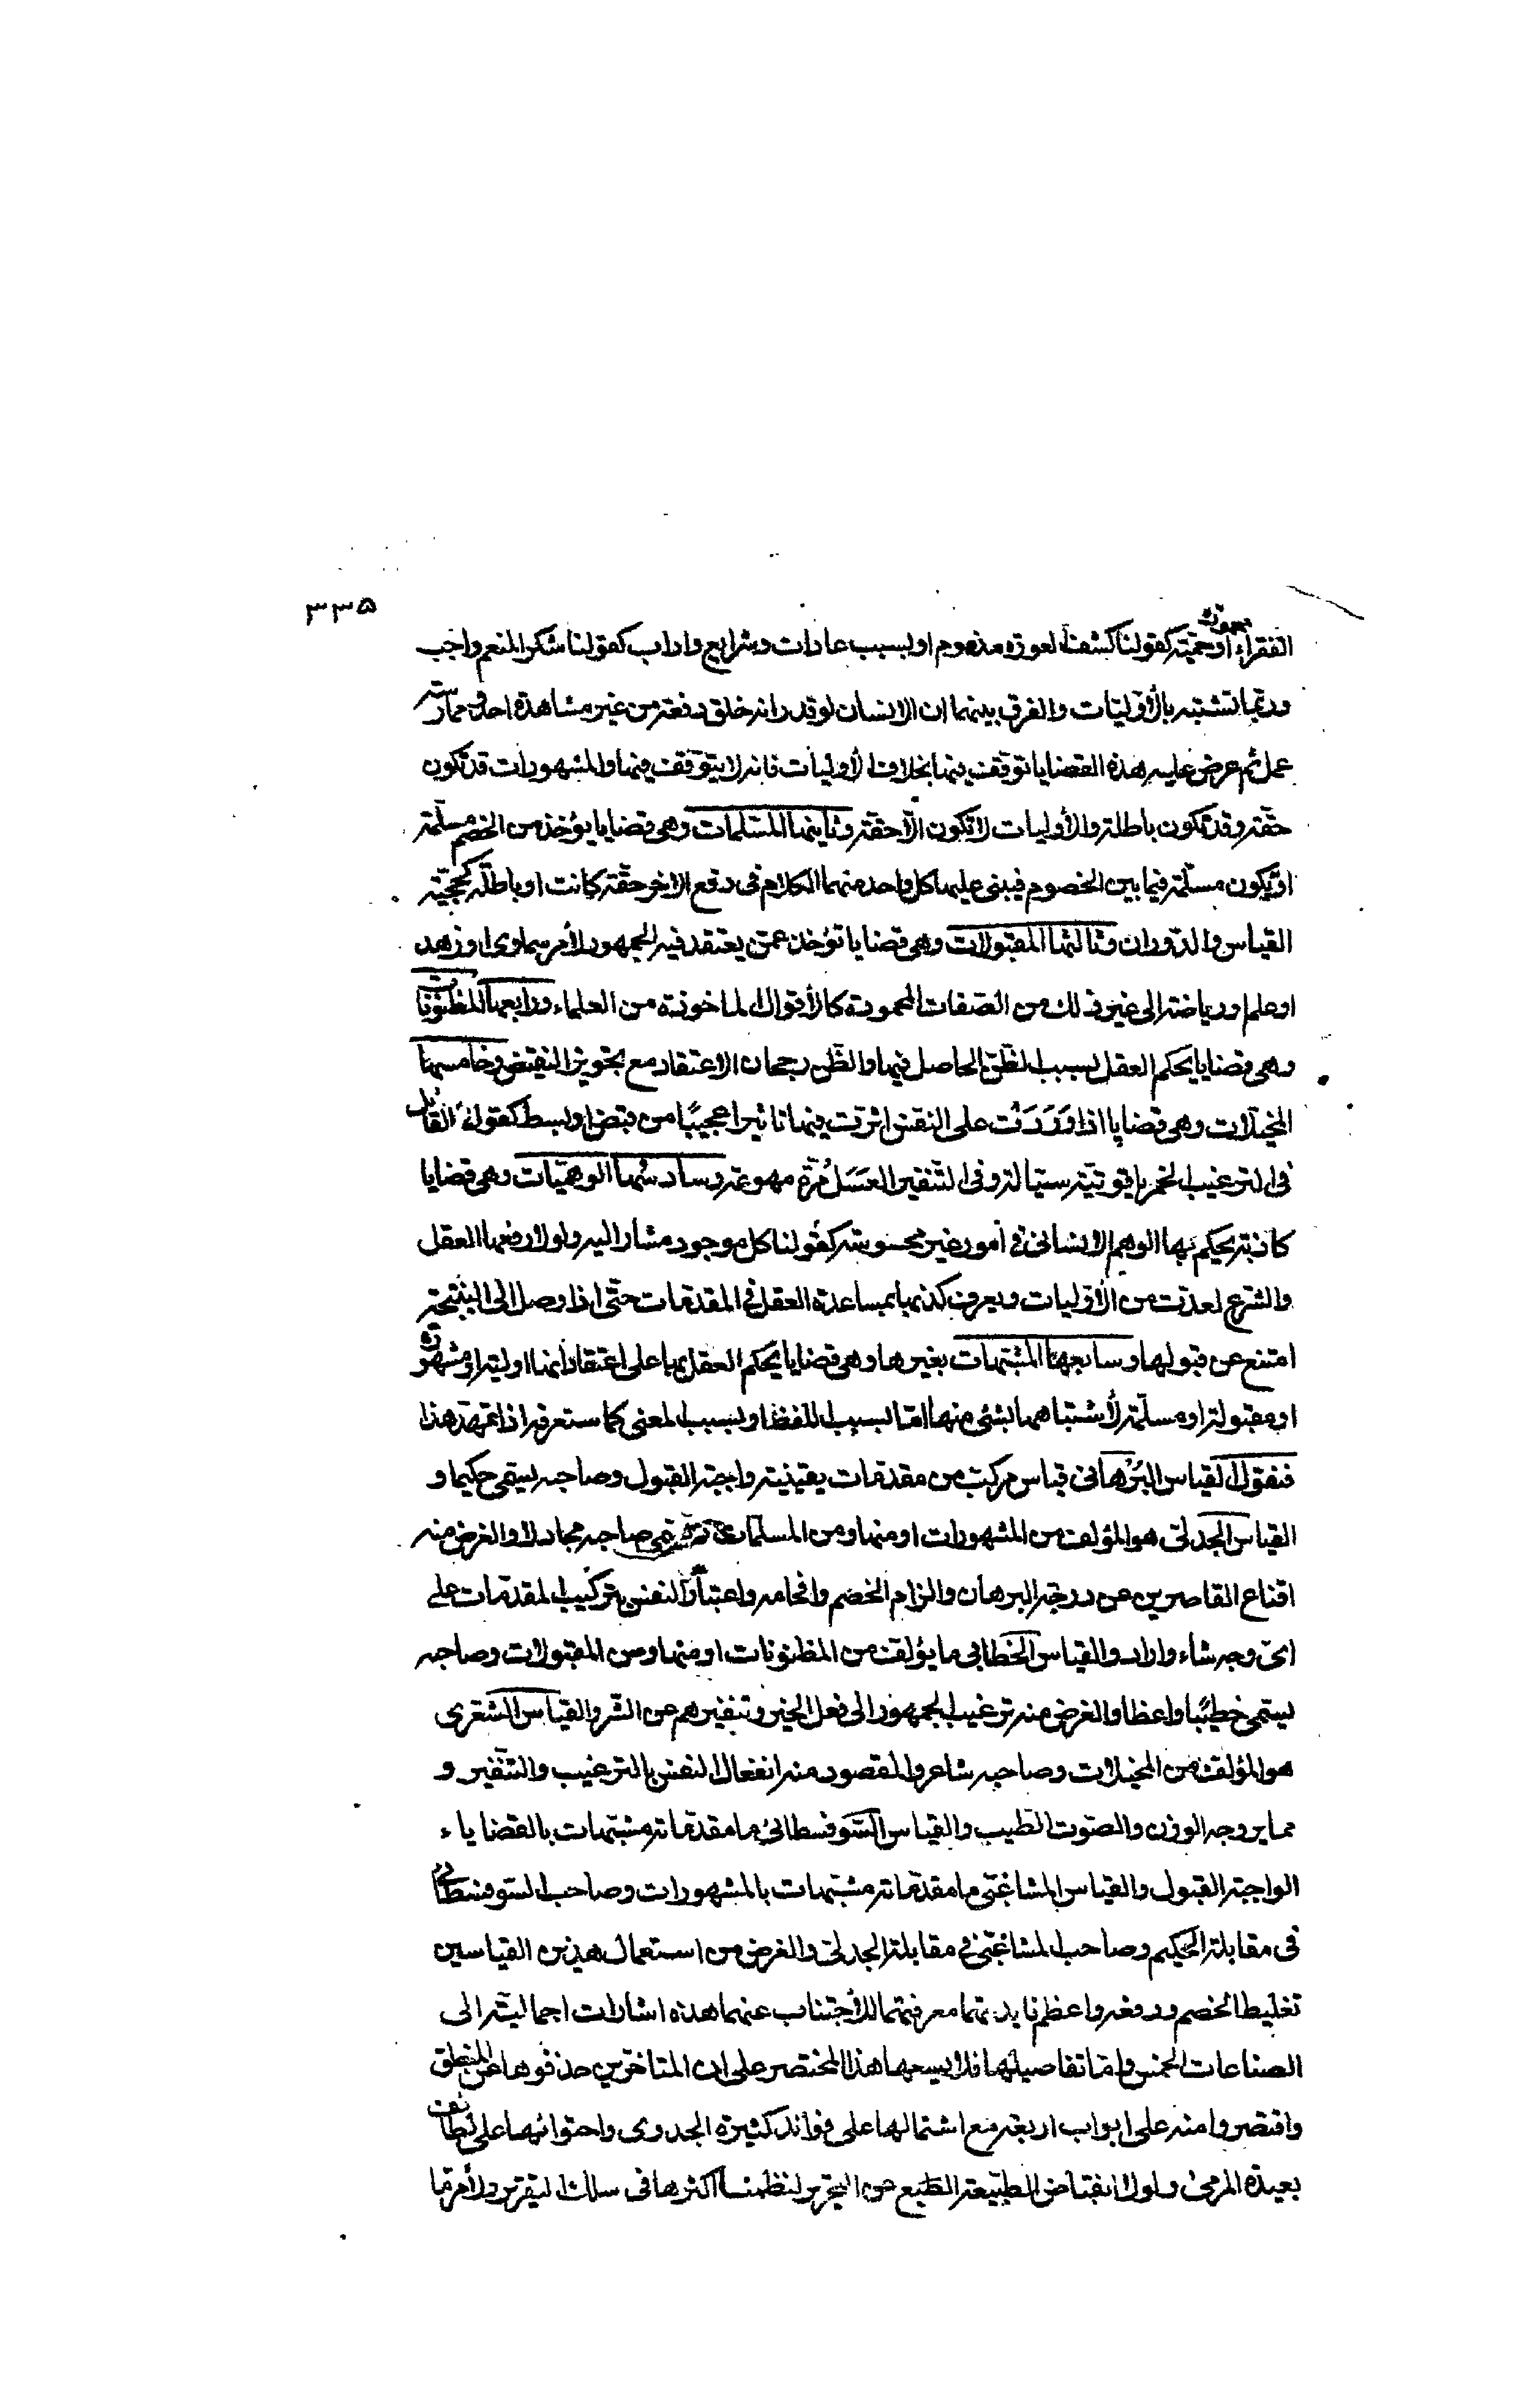 ۳۳۵
الفقراء او حمية كقولنا كشف العورة مذموم او بسبب عادات وشرايع واداب كقولنا شكر المنعم واجب
وربّما تشتبه بالأوّليّات والفرق بينهما ان الانسان لو قدر انه خلق دفعة من غير مشاهدة احد وممارسة
عمل ثم عرض عليه هذه القضايا توقّف فيها بخلاف الأوليات فانه لا يتوقّف فيها والمشهورات قد تكون
حقّة وقد تكون باطلة والأوليات لا تكون الّا حقّة وثانيتها المسلّمات وهي قضايا يؤخذ من الخصم مسلّمة
او يكون مسلّمة فيما بين الخصوم فيبنى عليها كل واحد منهما الكلام في دفع الاخر حقّة كانت او باطلة كحجيّة
القياس والدّوران وثالثتها المقبولات وهي قضايا تؤخذ عمّن يعتقد فيه الجمهور لأمر سماوى او زهد
او علم ورياضة الى غير ذلك من الصّفات المحمودة كالأقوال الماخوذة من العلماء ورابعها المظنونات
وهي قضايا يحكم العقل بسبب الظّنّ الحاصل فيها والظّن رجحان الاعتقاد مع تجويز النقيض وخامستها
المخيّلات وهي قضايا اذا وَرَدَتْ على النفس اثّرت فيها تاثيرا عجيبًا من قبض او بسط كقول القائل
في الترغيب الخمر ياقوتيّة سيّالة وفي التّنفير العَسَلُ مُرّة مهوعة وسادسُها الوهميّات وهي قضايا
كاذبة يحكم بها الوهم الانساني في أمور غير محسوسة كقولنا كل موجود مشار اليه ولولا رفعها العقل
والشرع لعدّت من الأوّليات ويعرف كذبها بمساعدة العقل في المقدّمات حتّى اذا وصل الى النتيجة
امتنع عن قبولها وسابعها المشتبهات بغيرها وهي قضايا يحكم العقل بها على اعتقاد انها اولية او مشهورة
او مقبولة او مسلّمة لأشتباهها بشئ منها امّا بسبب اللفظ او بسبب المعنى كما ستعرفه اذا تمهّد هذا
فنقول القياس البُرْهاني قياس مركّب من مقدّمات يقينية واجبة القبول وصاحبه يسمّى حكيما و
القياس الجدلي هو المؤلف من المشهورات او منها ومن المسلّمات صاحبه مجادلا والغرض منه
اقناع القاصرين عن درجة البرهان والزام الخصم وافحامه واعتياد النفس بتركيب المقدّمات على
اىّ وجه شاء واراد والقياس الخطابي ما يؤلف من المظنونات او منها ومن المقبولات وصاحبه
يسمّى خطيبًا واعظا والغرض منه ترغيب الجمهور الى فعل الخير وتنفيرهم عن الشّر والقياس الشعرى
هو المؤلف من المخيّلات وصاحبه شاعر والمقصود منه انفعال النفس بالترغيب والتنفير و
مما يروجه الوزن والصّوت الطّيب والقياس السّوفسطائى ما مقدّماته مشتبهات بالقضايا
الواجبة القبول والقياس المشاغبى ما مقدّماته مشتبهات بالمشهورات وصاحب السّوفسطائى
في مقابلة الحكيم وصاحب المشاغبى في مقابلة الجدلى والغرض من استعمال هذين القياسين
تغليط الخصم ودفعه واعظم فايدتهما معرفتهما للأجتناب عنهما هذه اشارات اجماليّة الى
الصناعات الخمس وامّا تفاصيلها فلا يسعها هذا المختصر على ان المتاخّرين حذفوها عن المنطق
واقتصروا منه على ابواب اربعة مع اشتمالها على فوائد كثيرة الجدوى واحتوائها على لطائف
بعيدة المرمى ولولا انقباض الطبيعة الطّبع عن التحرير لنظمنا اكثرها في سلك التقرير ولأمر مّا